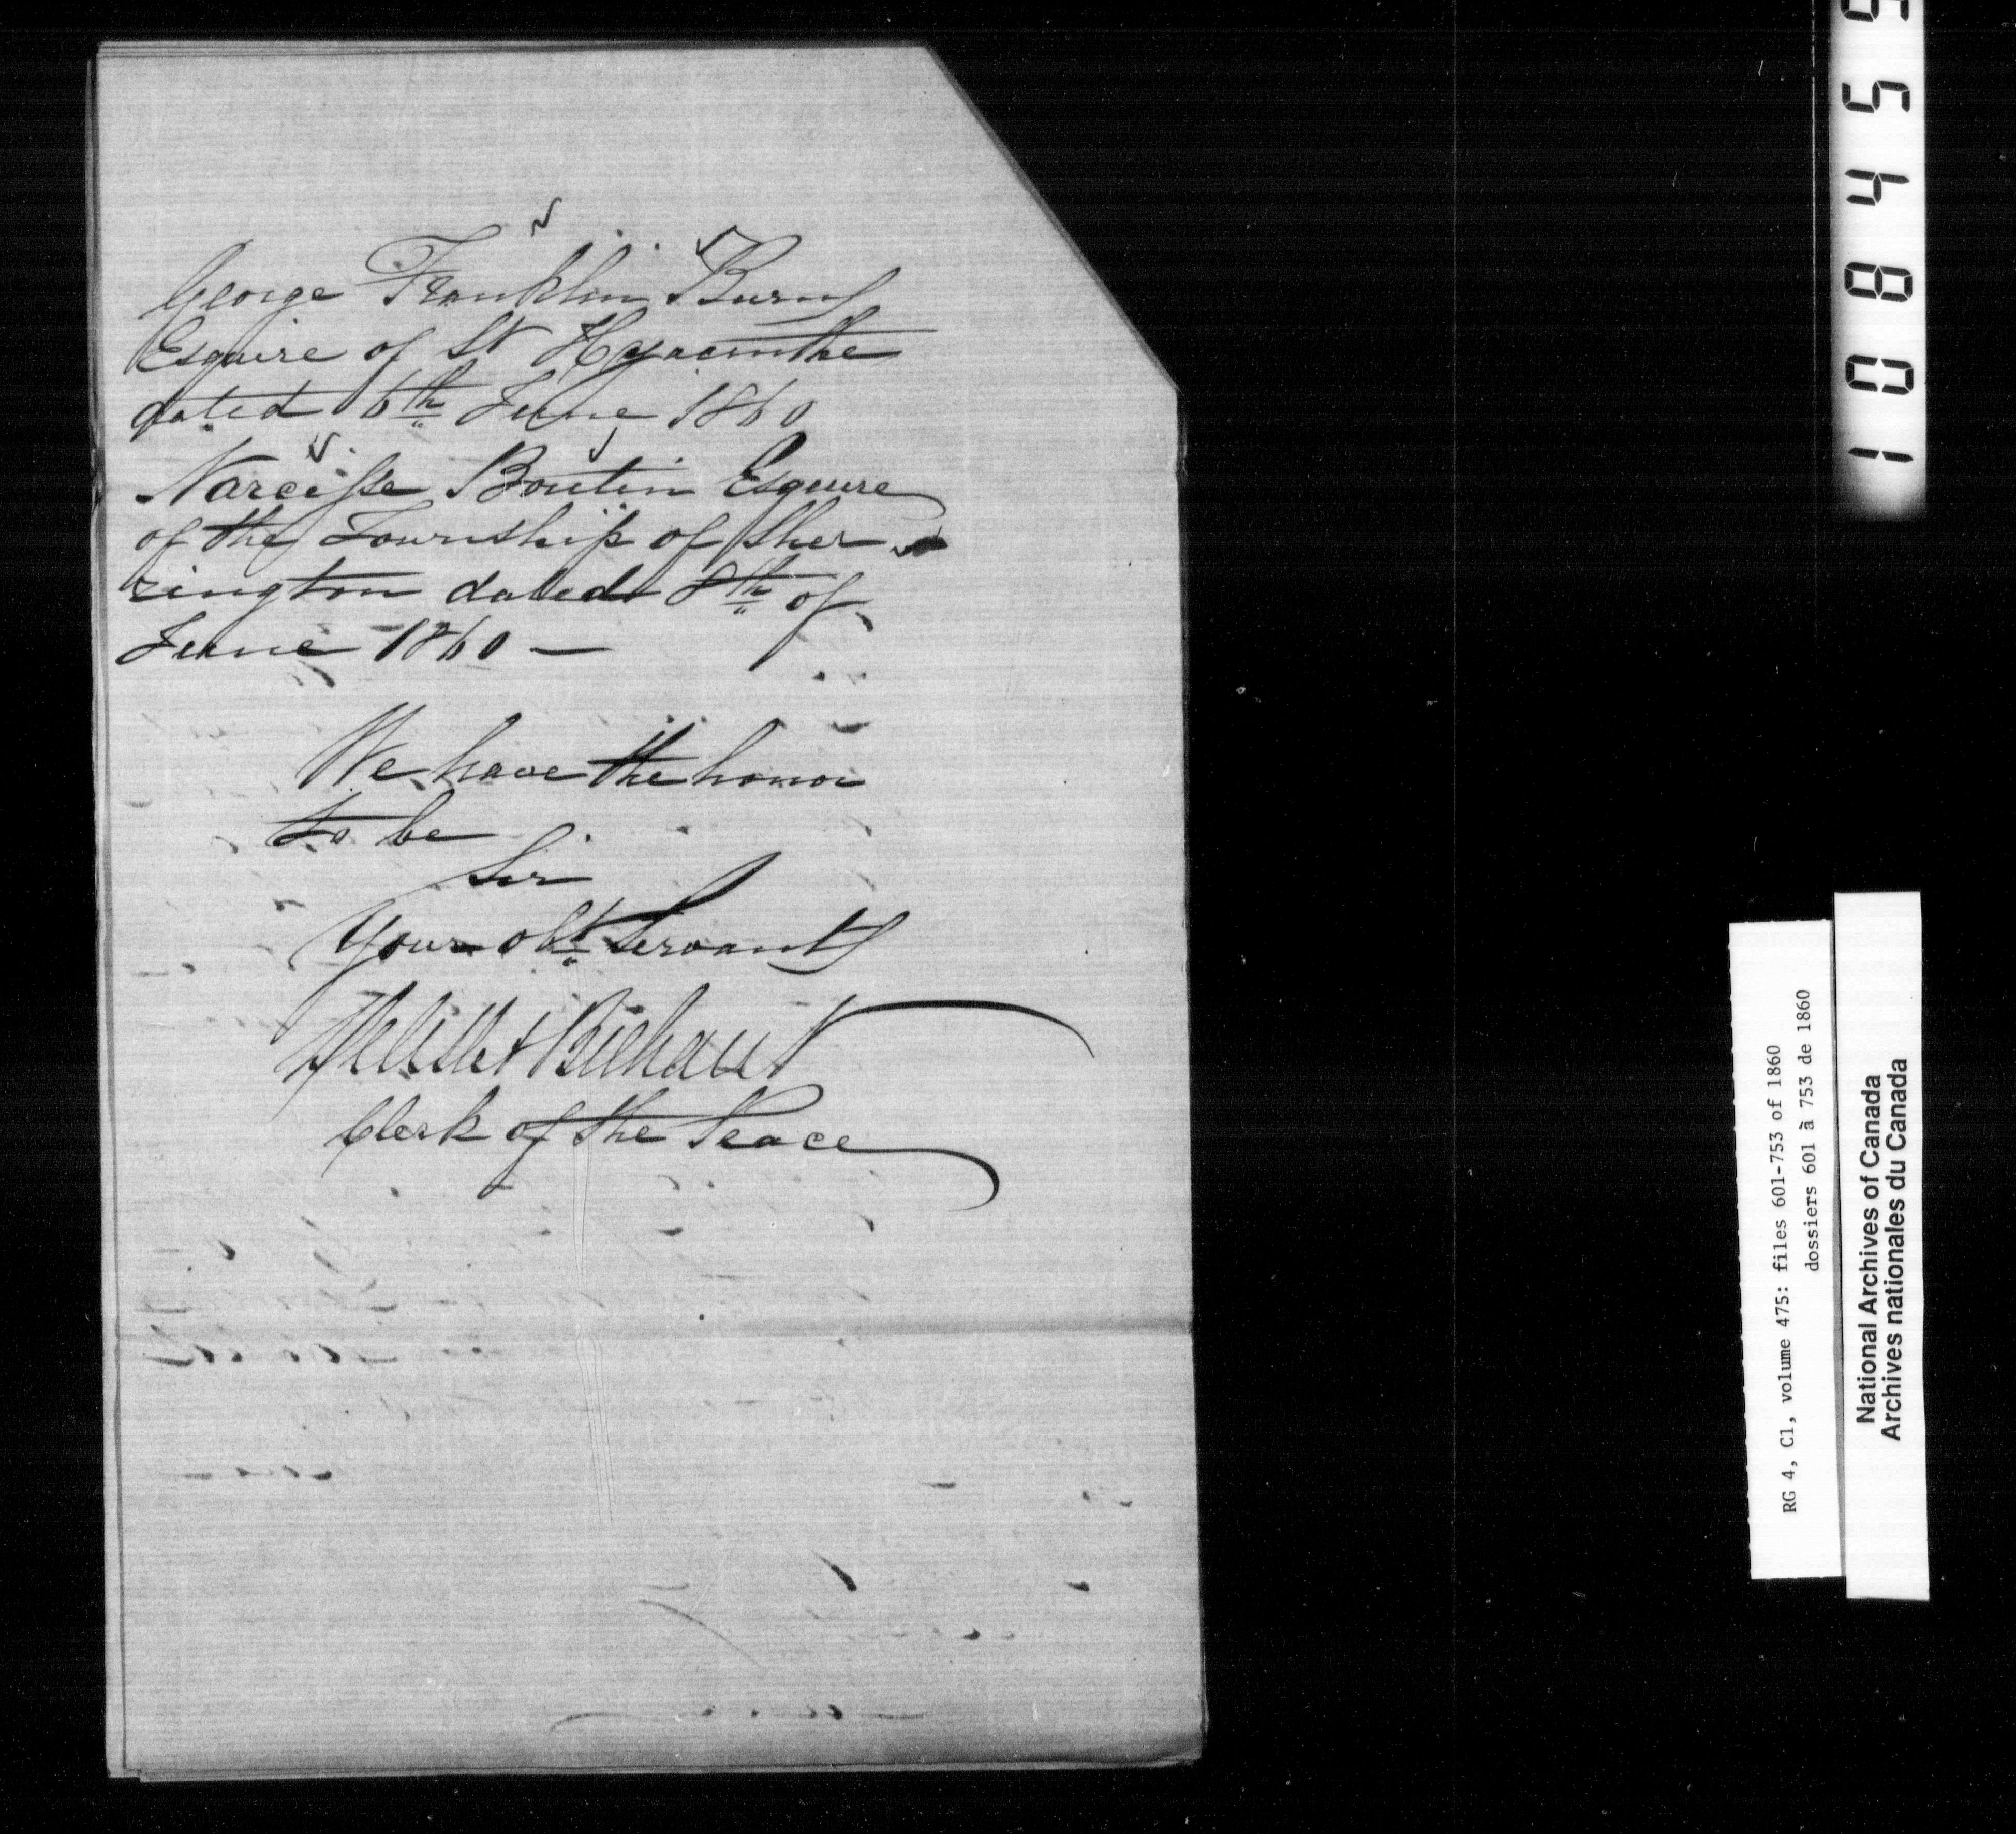 George Franklin Burns
Esquire of St Hyacinthe
dated 6th June 1860
Narcisse Boutin Esquire
of the Township of Sher
rington dated 8th of
June 1860 —
We have the honor
to be
Sir
Your obt Servants
Delisle & Brehaut
Clerk of the Peace
108459
RG 4, C1, volume 475: files 601-753 of 1860
dossiers 601 à 753 de 1860
National Archives of Canada
Archives nationales du Canada